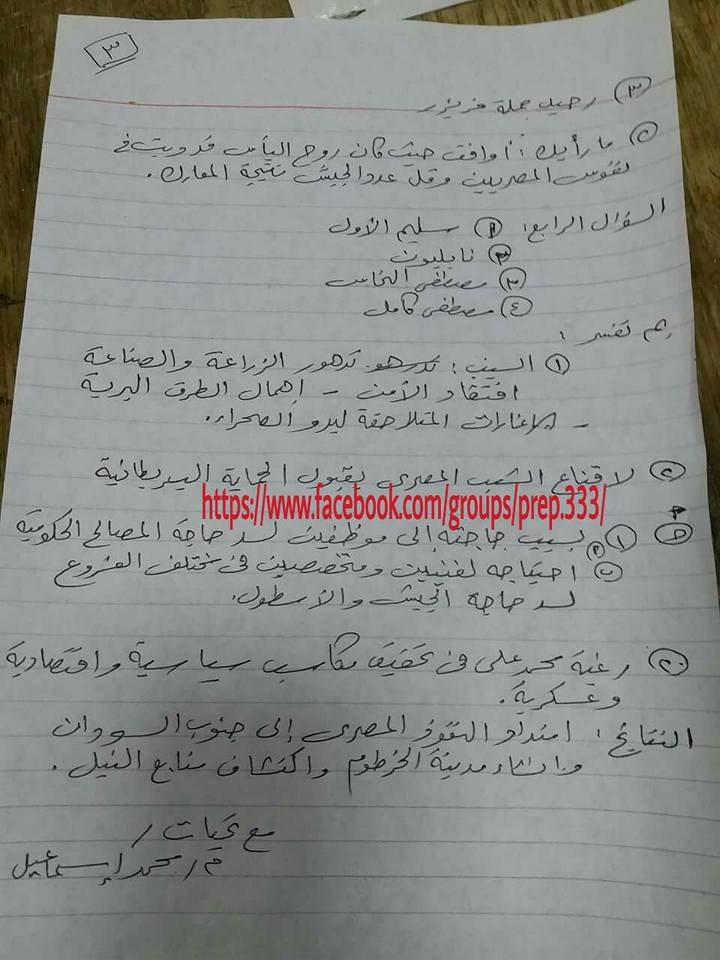 ٣
③ رحيل حملة فريزر
② ما رأيك: أوافق حيث كان روح اليأس قد دبت في
نفوس المصريين وقل عدد الجيش نتيجة المعارك.
السؤال الرابع: ① سليم الأول
② نابليون
③ مصطفى النحاس
④ مصطفى كامل
بم تفسر:
① السبب: تدهور الزراعة والصناعة
افتقاد الأمن - إهمال الطرق البرية
- الإغارات المتلاحقة لبدو الصحراء.
② لاقناع الشعب المصرى بقبول الحماية البريطانية
https://www.facebook.com/groups/prep.333/
① بسبب حاجته إلى موظفين لسد حاجة المصالح الحكومية
احتياجه لفنيين ومتخصصين فى مختلف الفروع
لسد حاجة الجيش والأسطول.
② رغبة محمد على فى تحقيق مكاسب سياسية واقتصادية
وعسكرية.
النتائج: امتداد النفوذ المصرى إلى جنوب السودان
وإنشاء مدينة الخرطوم واكتشاف منابع النيل.
مع تحيات /
م / محمد إسماعيل